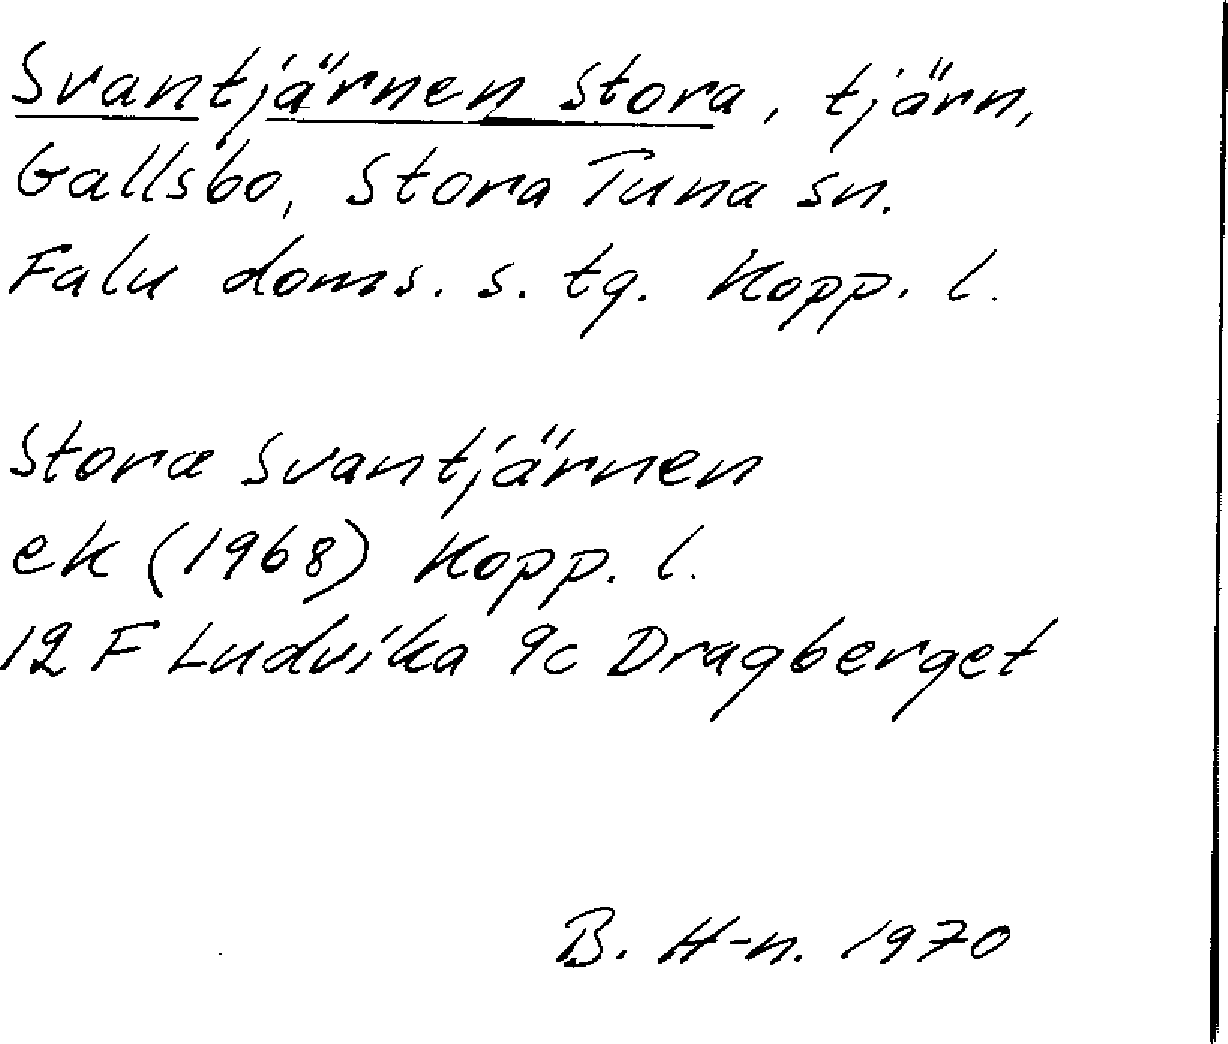 Svantjärnen Stora, tjärn,
Gallsbo, Stora Tuna sn.
Falu doms. s. tg. Kopp. l.
Stora Svantjärnen
ek (1968) Kopp. l.
12 F Ludvika 9c Dragberget
B. H-n. 1970